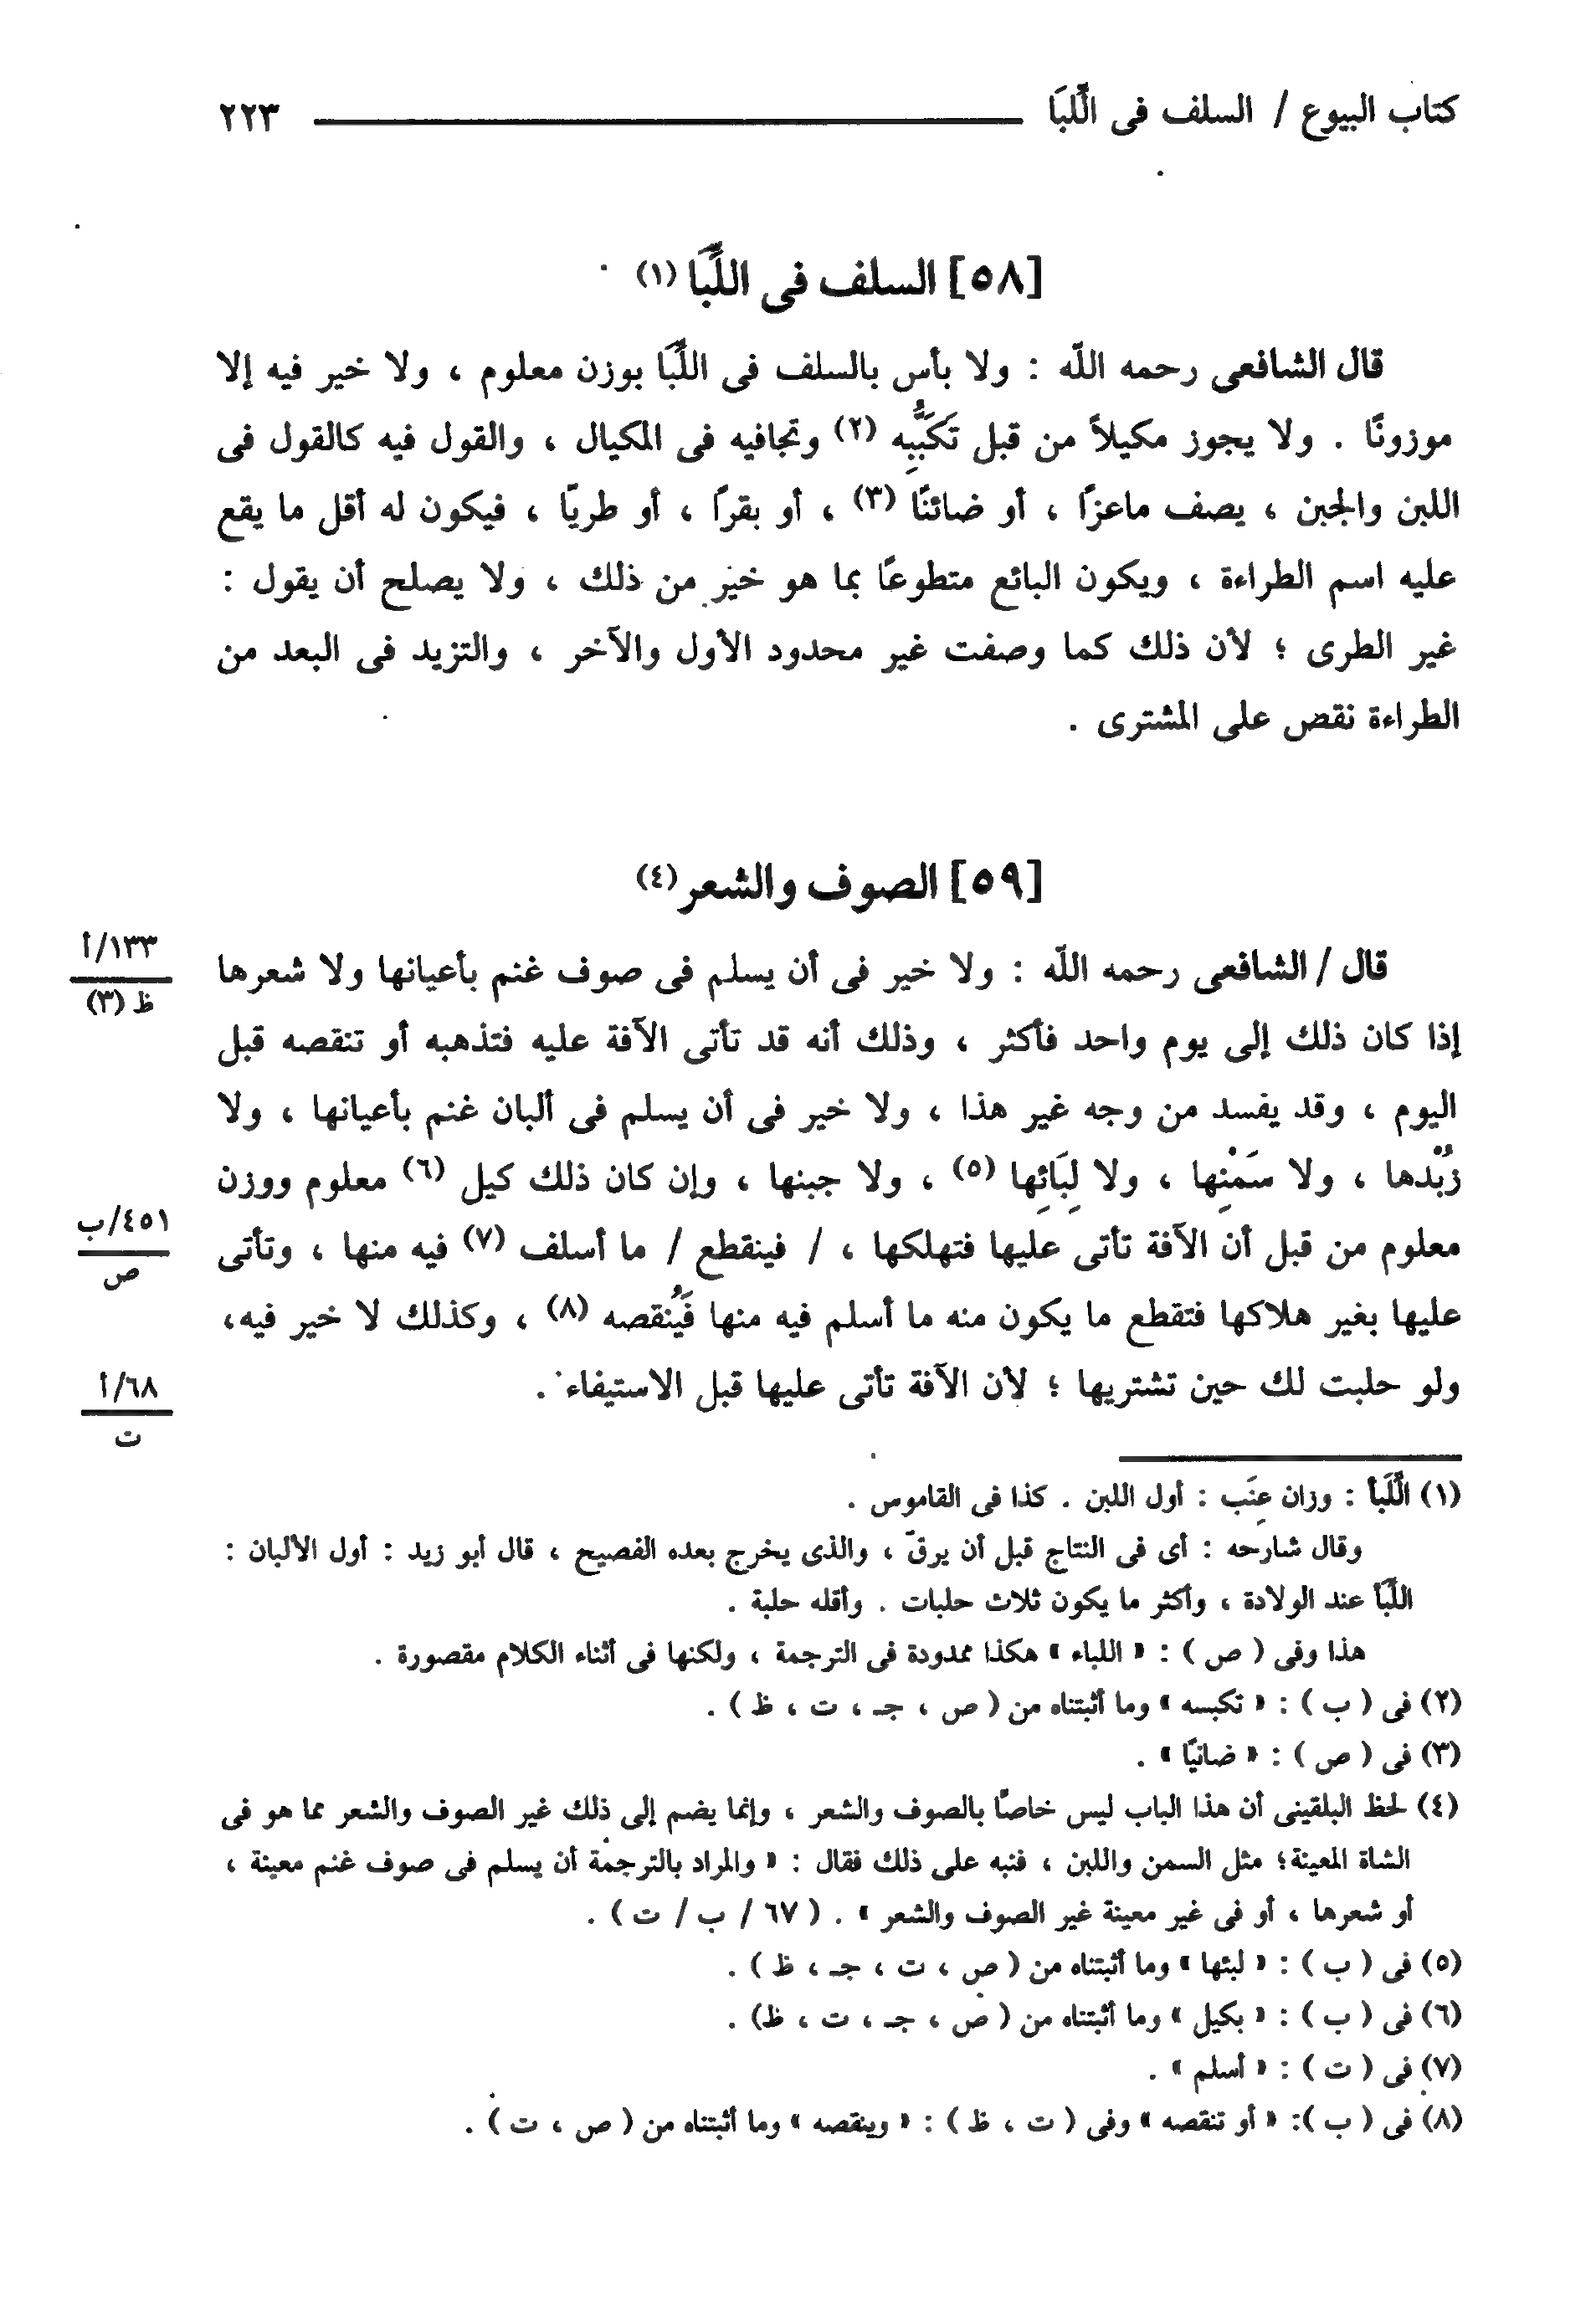 كتاب البيوع / السلف فى اللِّبَا ــــــــ ٢٢٣
[٥٨] السلف فى اللِّبَا (١)
قال الشافعى رحمه اللّه : ولا بأس بالسلف فى اللِّبَا بوزن معلوم ، ولا خير فيه إلا
موزونًا . ولا يجوز مكيلاً من قبل تَكَبُّبِه (٢) وتجافيه فى المكيال ، والقول فيه كالقول فى
اللبن والجبن ، يصف ماعزًا ، أو ضائنًا (٣) ، أو بقرًا ، أو طريّا ، فيكون له أقل ما يقع
عليه اسم الطراءة ، ويكون البائع متطوعًا بما هو خير من ذلك ، ولا يصلح أن يقول :
غير الطرى ؛ لأن ذلك كما وصفت غير محدود الأول والآخر ، والتزيد فى البعد من
الطراءة نقص على المشترى .
[٥٩] الصوف والشعر (٤)
قال / الشافعى رحمه اللّه : ولا خير فى أن يسلم فى صوف غنم بأعيانها ولا شعرها
١٣٣/أ
ظ (٣)
إذا كان ذلك إلى يوم واحد فأكثر ، وذلك أنه قد تأتى الآفة عليه فتذهبه أو تنقصه قبل
اليوم ، وقد يفسد من وجه غير هذا ، ولا خير فى أن يسلم فى ألبان غنم بأعيانها ، ولا
زُبْدها ، ولا سَمْنِها ، ولا لِبَائِها (٥) ، ولا جبنها ، وإن كان ذلك كيل (٦) معلوم ووزن
معلوم من قبل أن الآفة تأتى عليها فتهلكها ، / فينقطع / ما أسلف (٧) فيه منها ، وتأتى
٤٥١/ب
ص
عليها بغير هلاكها فتقطع ما يكون منه ما أسلم فيه منها فَيُنقصه (٨) ، وكذلك لا خير فيه،
ولو حلبت لك حين تشتريها ؛ لأن الآفة تأتى عليها قبل الاستيفاء .
٦٨/أ
ت
(١) اللِّبَأ : وزان عِنَب : أول اللبن . كذا فى القاموس .
وقال شارحه : أى فى النتاج قبل أن يرقّ ، والذى يخرج بعده الفصيح ، قال أبو زيد : أول الألبان :
اللِّبَأ عند الولادة ، وأكثر ما يكون ثلاث حلبات . وأقله حلبة .
هذا وفى ( ص ) : « اللباء » هكذا ممدودة فى الترجمة ، ولكنها فى أثناء الكلام مقصورة .
(٢) فى ( ب ) : « تكبسه » وما أثبتناه من ( ص ، جـ ، ت ، ظ ) .
(٣) فى ( ص ) : « ضانيًا » .
(٤) لحظ البلقينى أن هذا الباب ليس خاصًا بالصوف والشعر ، وإنما يضم إلى ذلك غير الصوف والشعر مما هو فى
الشاة المعينة؛ مثل السمن واللبن ، فنبه على ذلك فقال : « والمراد بالترجمة أن يسلم فى صوف غنم معينة ،
أو شعرها ، أو فى غير معينة غير الصوف والشعر » . ( ٦٧ / ب / ت ) .
(٥) فى ( ب ) : « لبئها » وما أثبتناه من ( ص ، ت ، جـ ، ظ ) .
(٦) فى ( ب ) : « بكيل » وما أثبتناه من ( ص ، جـ ، ت ، ظ) .
(٧) فى ( ت ) : « أسلم » .
(٨) فى ( ب ): « أو تنقصه » وفى ( ت ، ظ ) : « وينقصه » وما أثبتناه من ( ص ، ت ) .